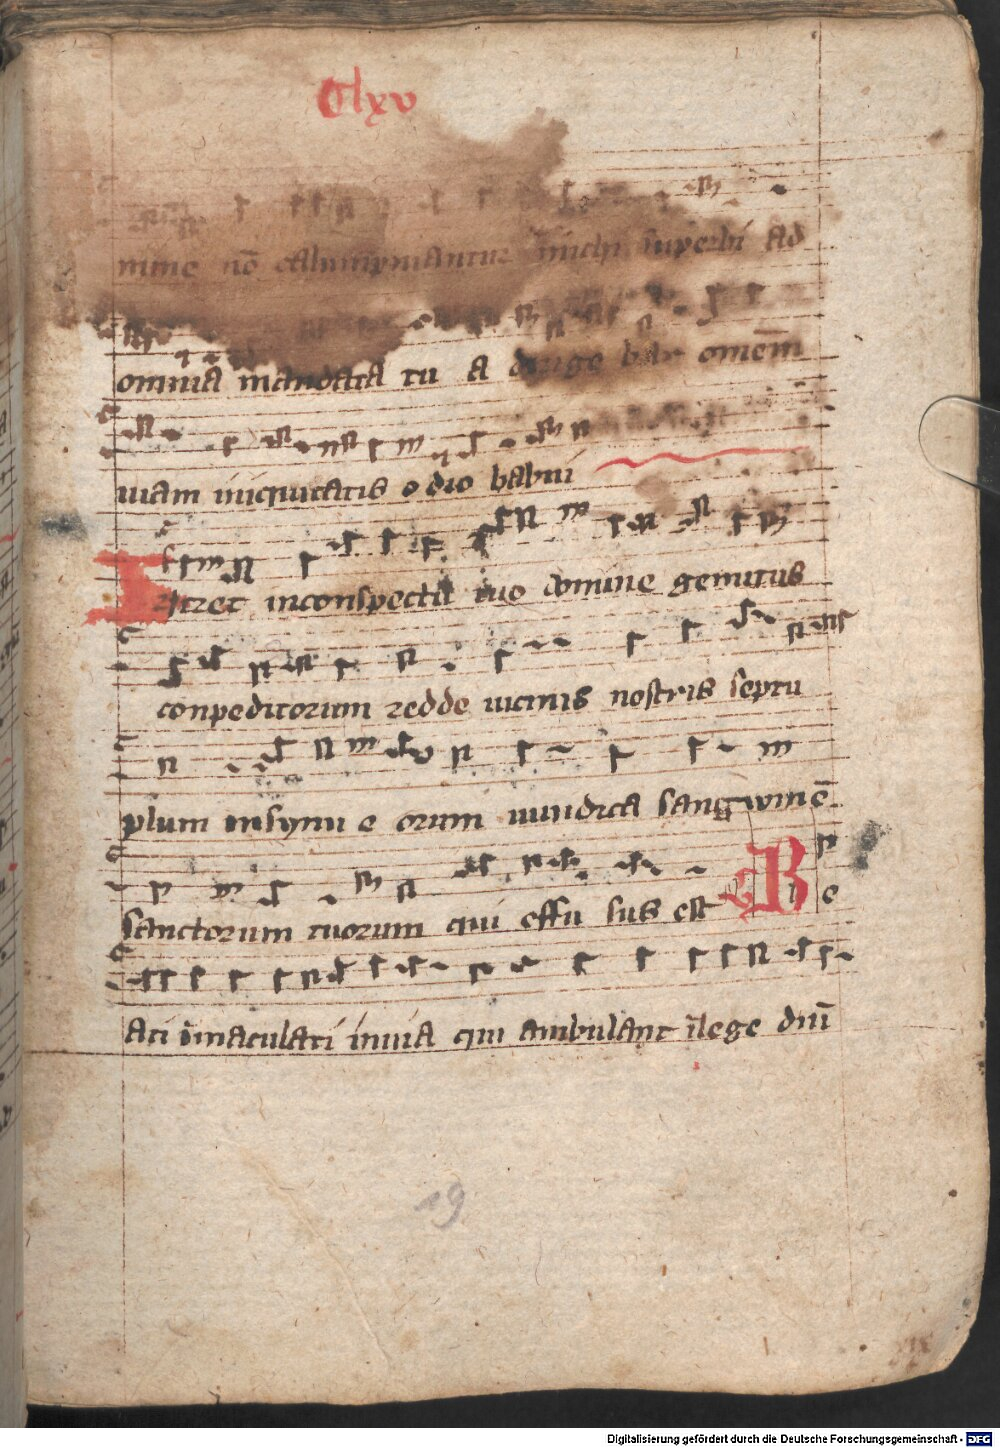 Clxv
mine nō calumpniantur michi sūperbi Ad
omnia mandata tu a dirige bar omem̄
uiam iniquitatis odio habui
Intret inconspectu tuo domine gemitus
conpeditorum redde uicinis nostris septu
plum insynu e orum uindica sangwinē
sanctorum tuorum qui effu sus est Be
ati īmaculati inuia qui ambulant īlege dnī
19
Digitalisierung gefördert durch die Deutsche Forschungsgemeinschaft - DFG